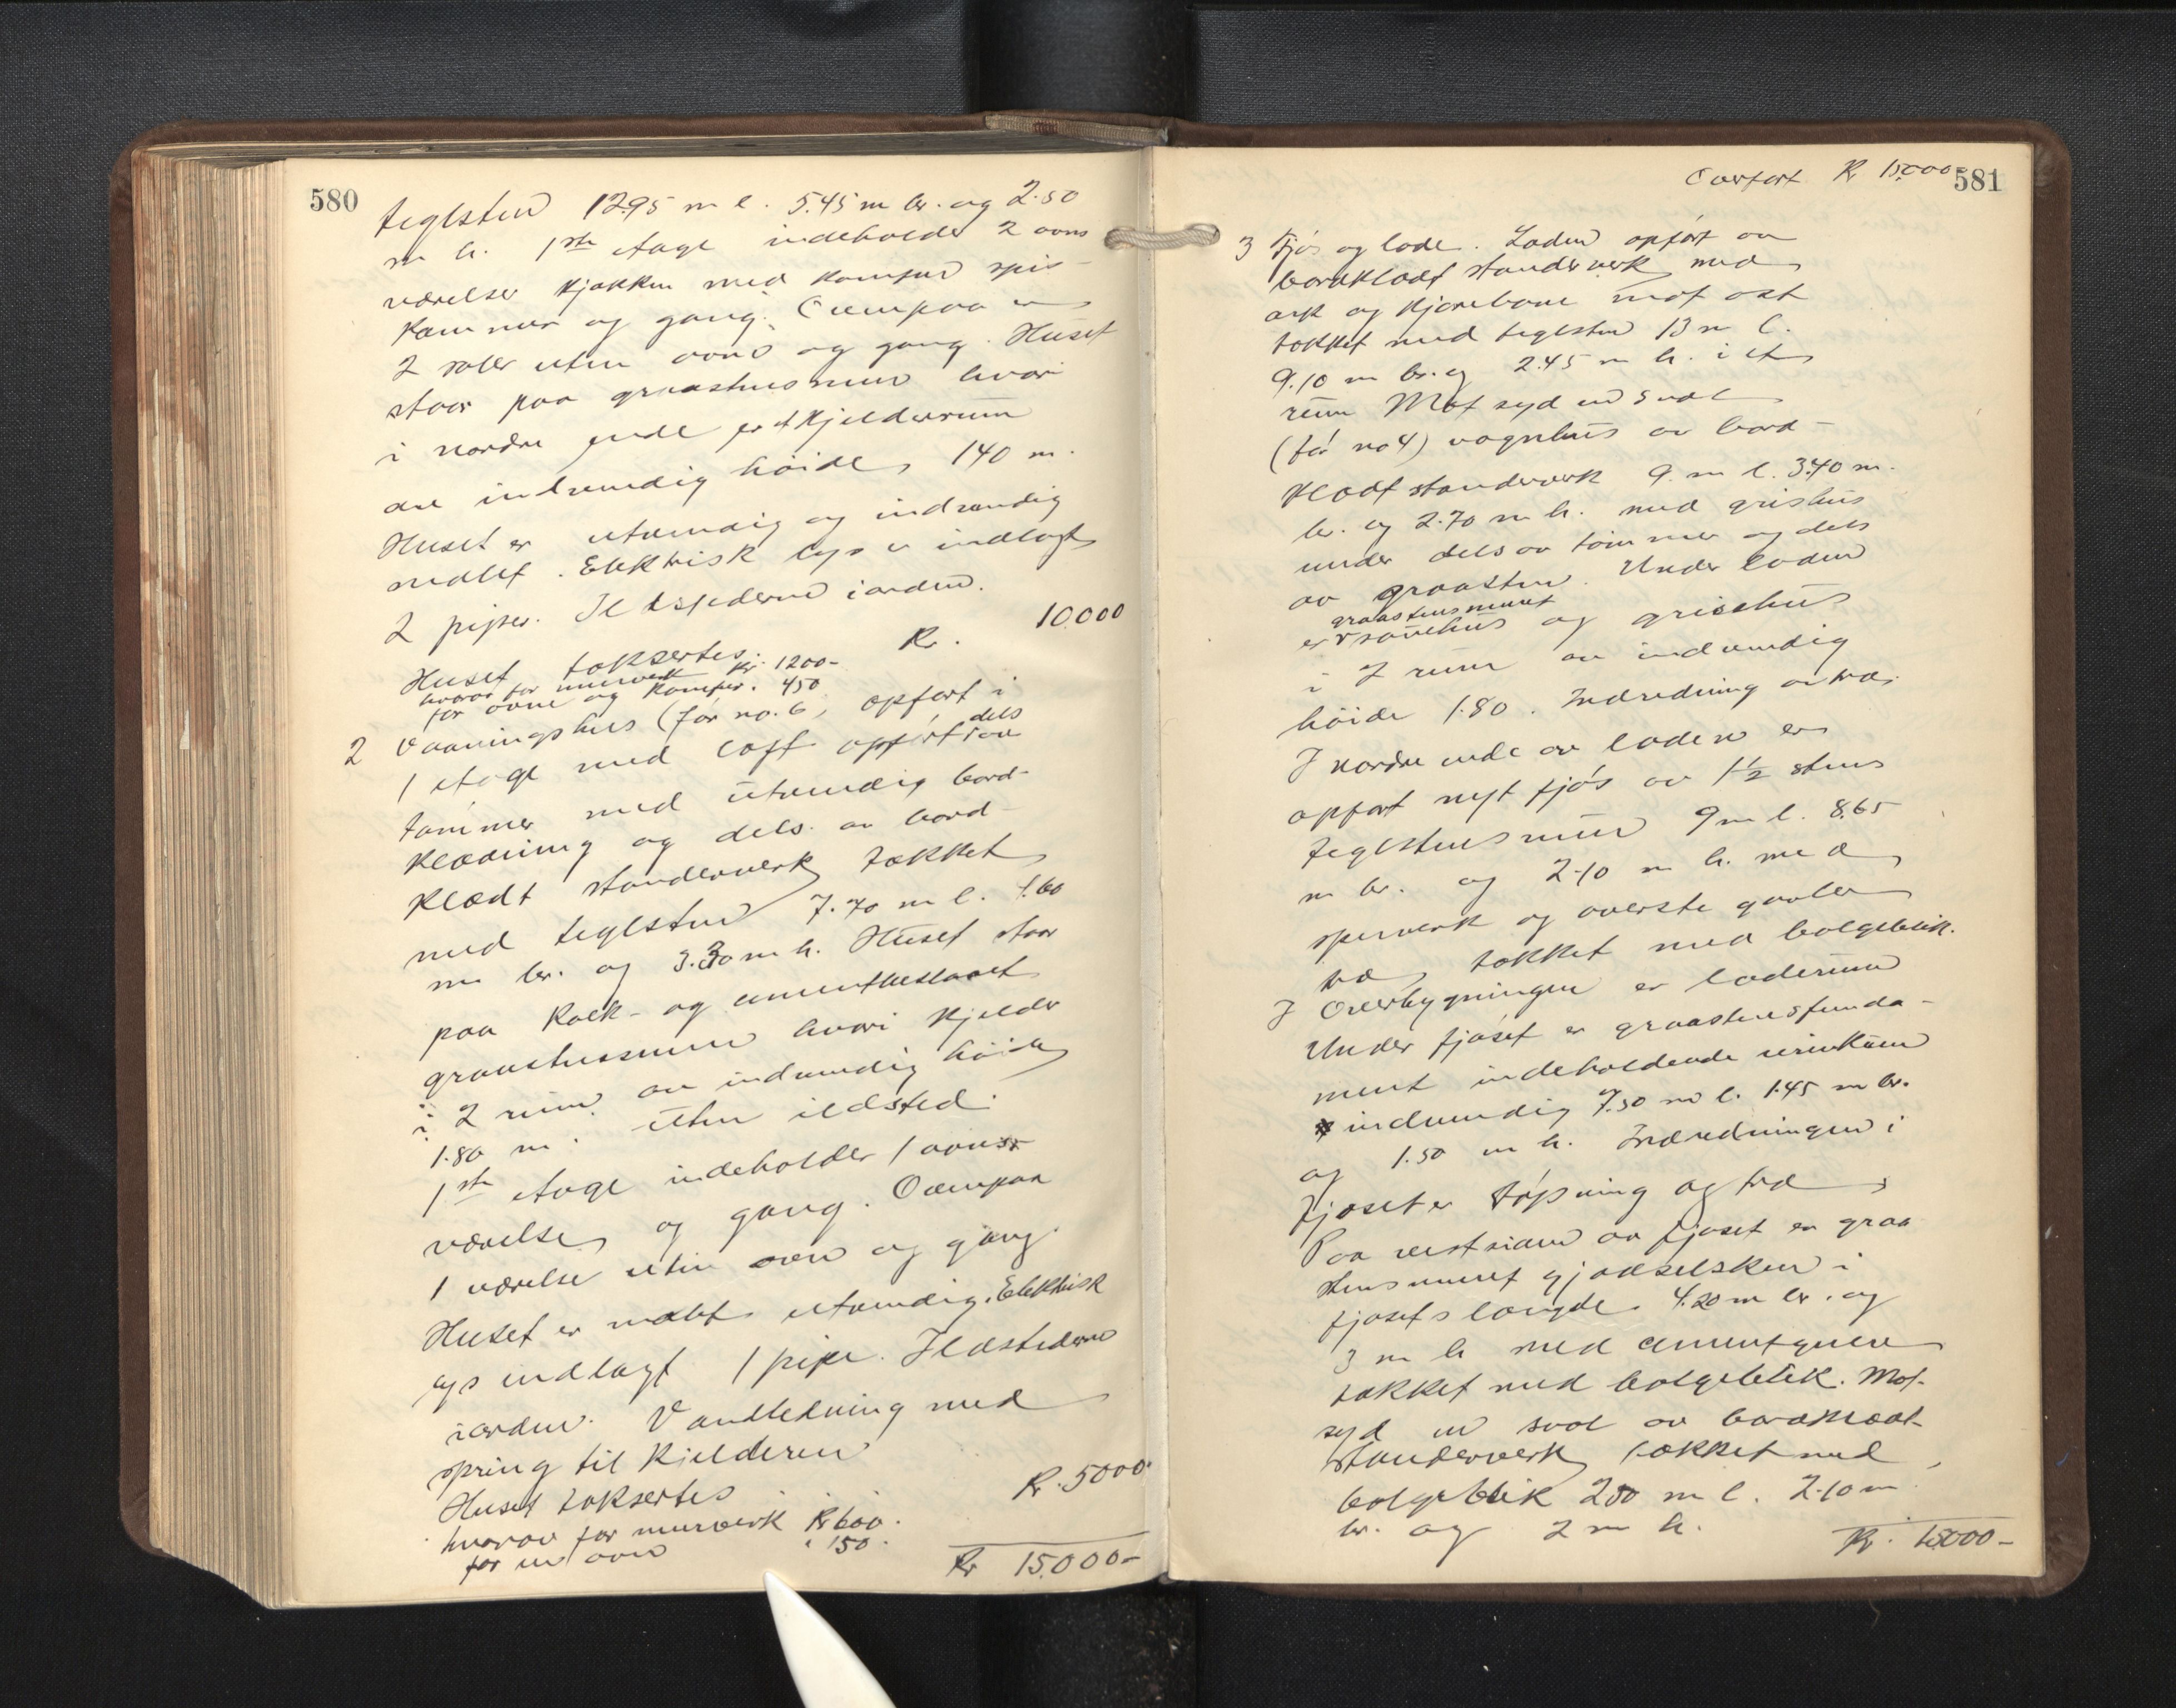 580
teglsten 12.95 m l. 5.45 m br. og 2.50
m h. 1ste etage indeholder 2 ovns
værelser kjøkken med komfur spis-
kammer og gang. Ovenpaa er
2 saler uten ovn og gang. Huset
staar paa graastensmur hvori
i nordre ende er et kjelderrum
av indvendig høide 1.40 m.
Huset er utvendig og indvendig
malet. Elektrisk lys er indlagt
2 piper. Ildstederne i orden.
Huset taksertes. Kr. 10.000
hvorav for murverk Kr. 1200-
for ovne og komfur. " 450
2 Vaaningshus (før no. 6, opført i
1 etage med loft opført dels av
tømmer med utvendig bord-
klædning og dels av bord-
klædt standerverk tækket
med teglsten 7.70 m l. 4.60
m br. og 3.30 m h. Huset staar
paa kalk- og cementbeslaaet
graastensmur hvori kjelder
i 2 rum av indvendig høide
1.80 m. uten ildsted.
1ste etage indeholder 1 ovns-
værelse og gang. Ovenpaa
1 værelse uten ovn og gang.
Huset er malet utvendig. Elektrisk
lys indlagt 1 pipe. Ildstederne
i orden. Vandledning med
spring til kjelderen
Huset taksertes Kr. 5000.
hvorav for murverk Kr 600.
for en ovn " 150.
Kr 15.000-
581
Overført Kr 15.000-
3 Fjøs og lade. Laden opført av
bordklædt standerverk med
ark og kjørebane mot øst
tækket med teglsten 13 m l.
9.10 m br. og 2.45 m h. i et
rum Mot syd en sval
(før no 4) vognhus av bord-
klædt standerverk 9 m l. 3.40 m.
br. og 2.70 m h. med grishus
under dels av tømmer og dels
av graasten. Under laden
er graastensmuret sauehus og grisehus
i 2 rum av indvendig
høide 1.80. Indredning av træ.
I nordre ende av laden er
opført nyt fjøs av 1½ stens
teglstensmur 9 m l. 8.65
m br. og 2.10 m h. med
sperverk og øverste gavler
træ, tækket med bølgeblik.
I Overbygningen er laderum
Under fjøset er graastensfunda-
ment indeholdende urinkum
indvendig 7.50 m l. 1.45 m br.
og 1.50 m h. Indredningen i
fjøset er støpning og træ
Paa vestsiden av fjøset er graa
stensmuret gjødselskur i
fjøsets længde 4.20 m br. og
3 m h med cementgulv
tækket med bølgeblik. Mot
syd en sval av bordklædt
standerverk tækket med
bølgeblik 2.50 m l. 2.10 m
br. og 2 m h.
Kr. 15.000-